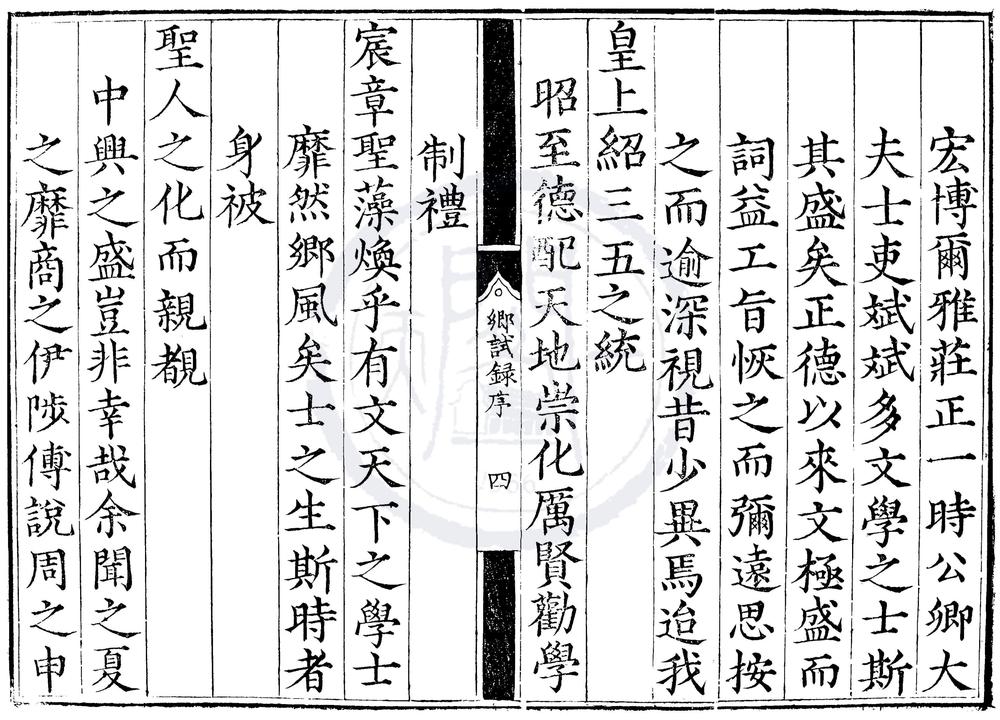 宏博爾雅莊正一時公卿大
夫士吏斌斌多文學之士斯
其盛矣正德以來文極盛而
詞益工旨恢之而彌遠思按
之而逾深視昔少異焉迨我
皇上紹三五之統
昭至德配天地崇化厲賢勸學
鄉試録序
四
制禮
宸章聖藻煥乎有文天下之學士
靡然鄉風矣士之生斯時者
身被
聖人之化而親覩
中興之盛豈非幸哉余聞之夏
之靡商之伊陟傅說周之申